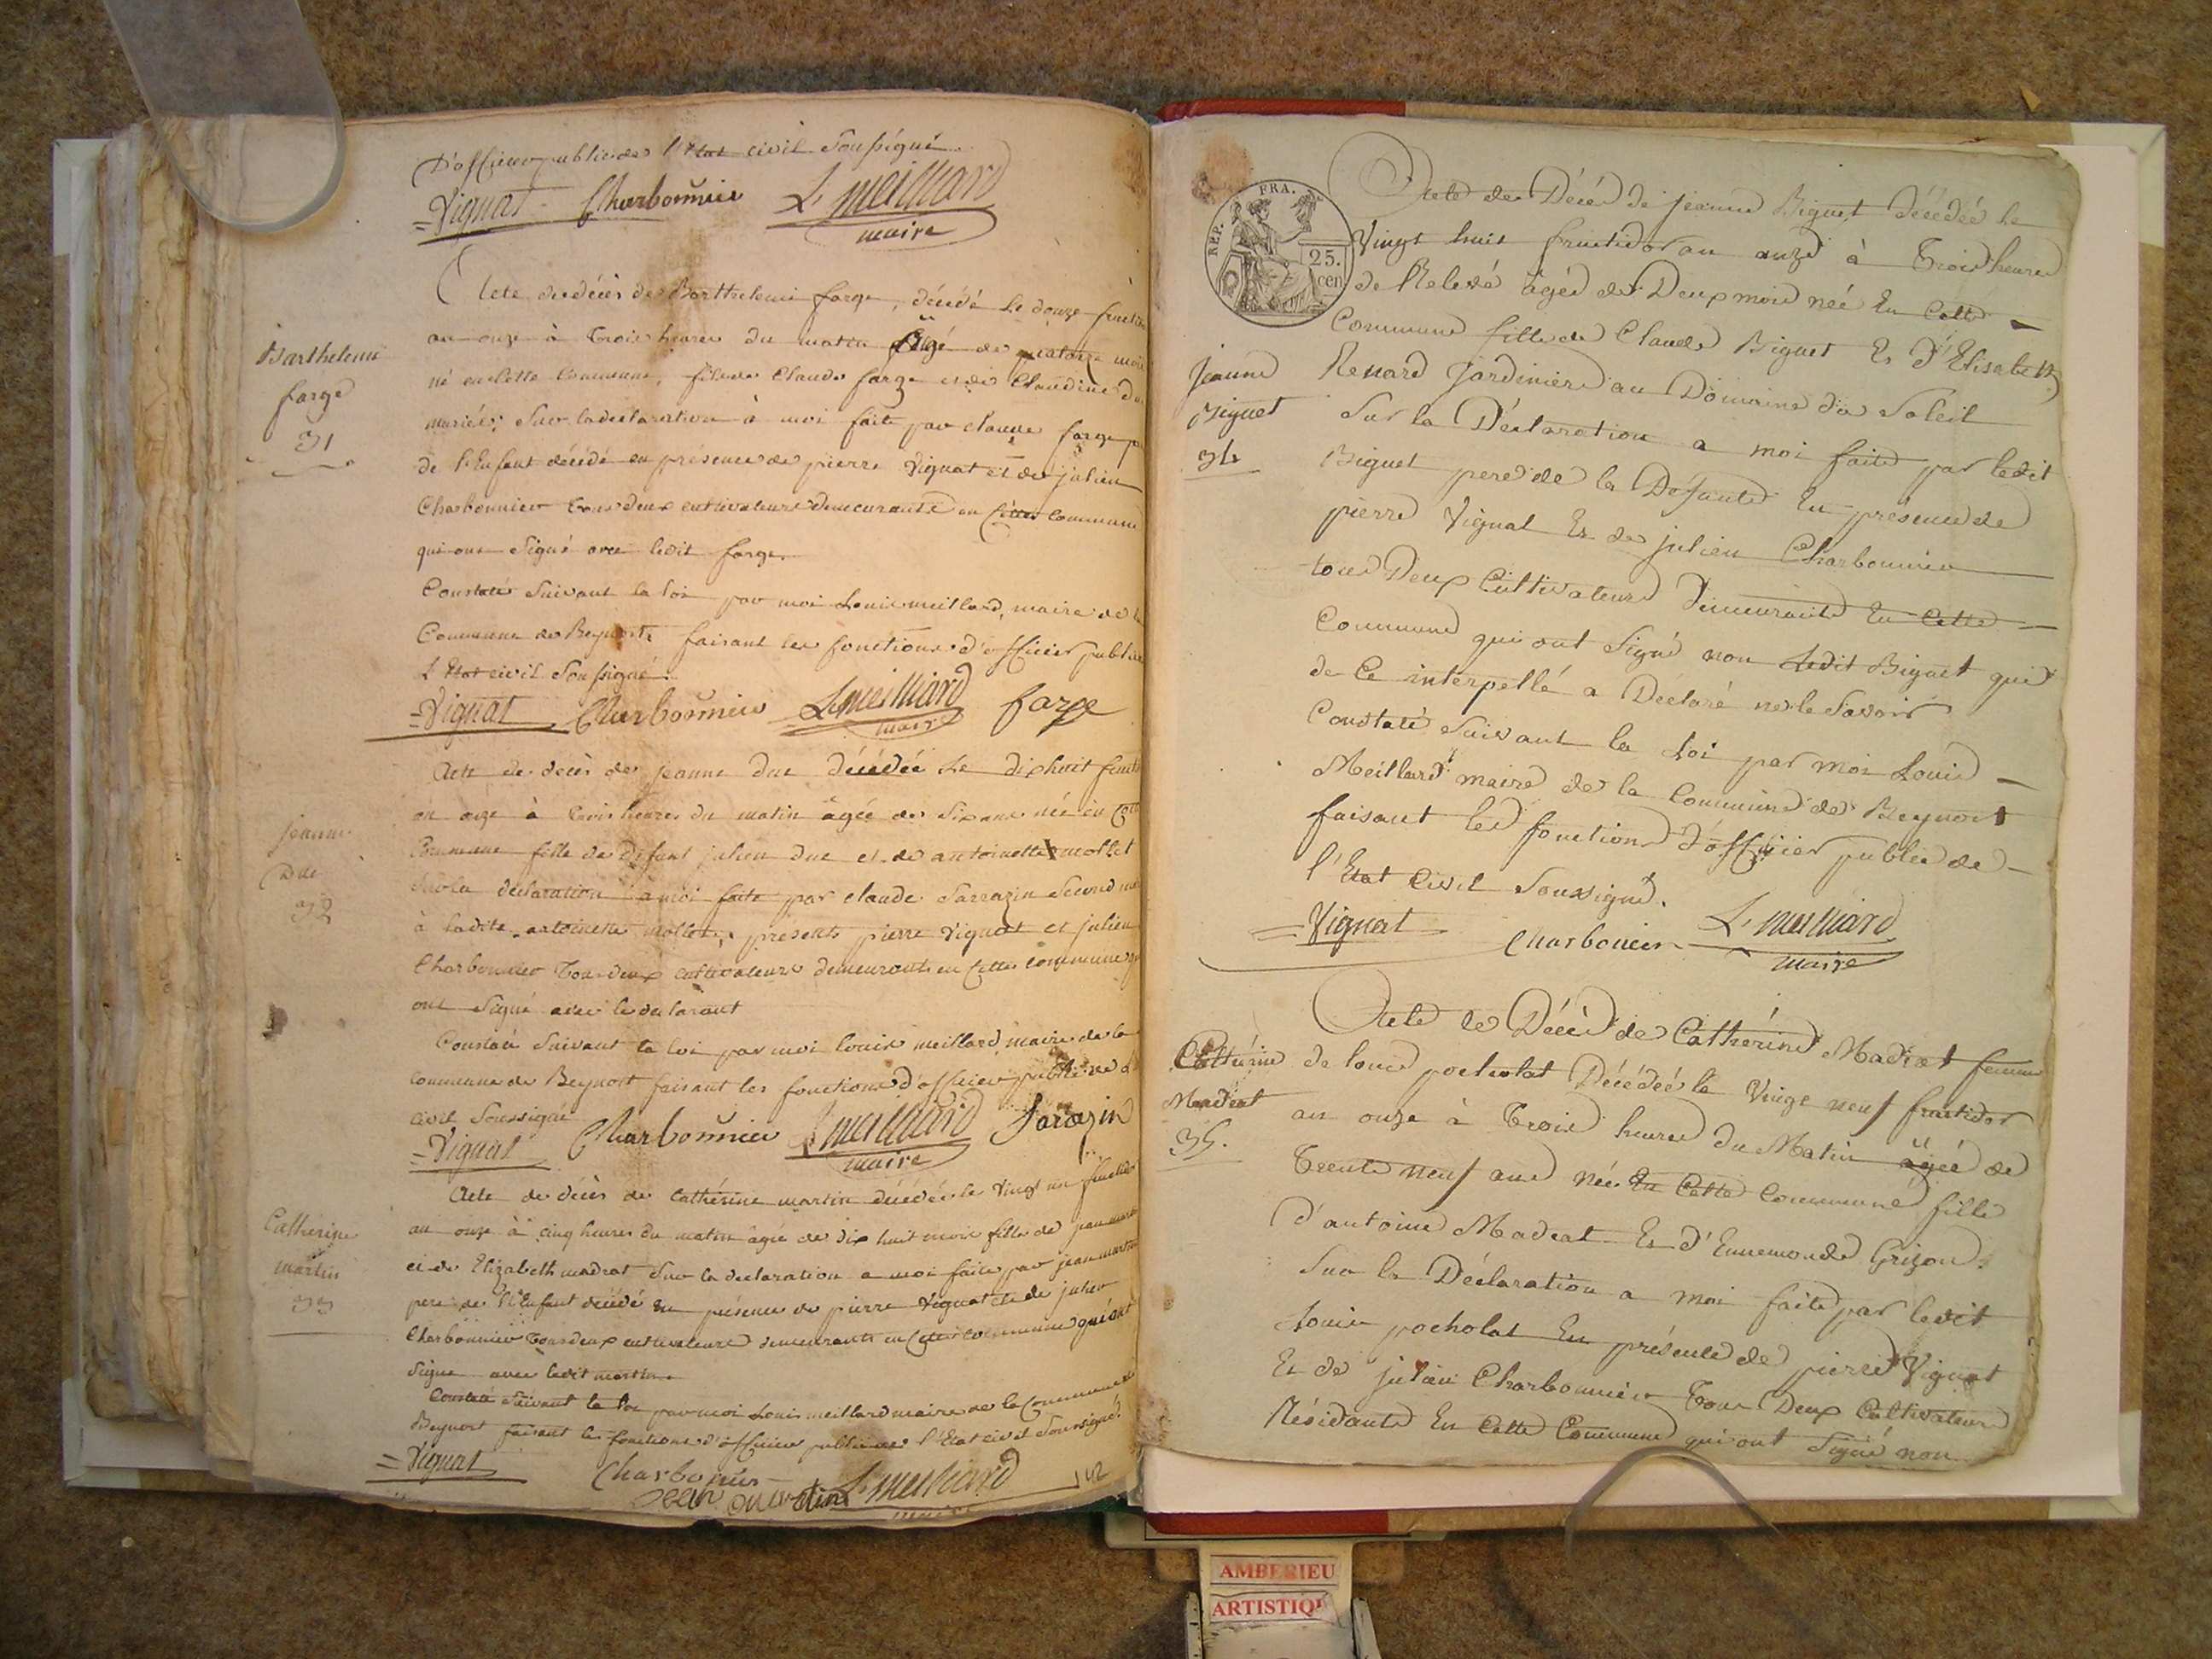 D'officier public de l'Etat civil soussigné
Vignat Charbonnier L. Meilliard
maire
Barthelemi
farge
31
Acte de décès de Barthelemi farge, décédé le douze
an onze à trois heures du matin âgé de quatorze mois
né en cette commune, fils de Claude farge et de Claudine
mariés; sur la déclaration à moi faite par claude farge
de l'Enfant décédé en présence de pierre Vignat et de julien
Charbonnier tous deux cultivateurs demeurants en Cette Commune
qui ont signé avec ledit farge.
Constaté suivant la loi par moi Louis meillard, maire de
Commune de Beynost faisant les fonctions d'officier public
l'Etat civil soussigné.
Vignat Charbonnier L. Meilliard farge
maire
jeanne
Duc
32
Acte de décès de jeanne duc décédée le dix huit
an onze à trois heures du matin âgée de six ans née en
Commune fille de défunt julien duc et de antoinette mollet
sur la déclaration à moi faite par claude Sarrazin second
à ladite antoinette mollet, présents pierre Vignat et julien
Charbonnier tous deux cultivateurs demeurants en Cette commune
ont signé avec le déclarant
Constaté suivant la loi par moi louis meillard maire de la
commune de Beynost faisant les fonctions d'officier public de
civil soussigné
Vignat Charbonnier L. Meilliard Sarazin
maire
Catherine
martin
33
Acte de décès de Cathérine martin décédée le vingt un fructidor
an onze à cinq heures du matin âgée de dix huit mois fille de jean
et de Elizabeth madrat sur la déclaration a moi faite par jean martin
pere de l'Enfant décédé en présence de pierre Vignat et de julien
Charbonnier tous deux cultivateurs demeurants en Cette commune qui ont
signé avec ledit martin.
Constaté suivant la loi par moi Louis meillard maire de la Commune de
Beynost faisant les fonctions d'officier public de l'Etat civil soussigné.
Vignat Charbonnier L. Meilliard
jean martin
maire
REP. FRA.
25.
cen
jeanne
Biguet
34
Acte de Décès de jeanne Biguet décédée le
Vingt huit fructidor an onze à trois heures
de Relevé âgée de Deux mois née En Cette
Commune fille de Claude Biguet Et d'Elisabeth
Renard jardinière au Domaine du Soleil
Sur la Déclaration a moi faite par ledit
Biguet pere de la Défunte En présence de
pierre Vignat Et de julien Charbonnier
tous Deux Cultivateurs Demeurants En Cette
Commune qui ont Signé non Ledit Biguet qui
de Ce interpellé a Déclaré ne le Savoir
Constaté Suivant la Loi par moi Louis
Meillard maire de la Commune de Beynost
faisant les fonctions d'officier public de
l'Etat Civil Soussigné.
Vignat Charbonier L. Meilliard
maire
Cathérine
Madrat
35.
Acte de Décès de Cathérine Madrat femme
de louis pocholat Décédée le Vingt neuf fructidor
an onze à trois heures du Matin âgée de
Trente neuf ans née En Cette Commune fille
d'antoine Madrat Et d'Ennemonde Grizon.
Sur la Déclaration a moi faite par ledit
Louis pocholat En présence de pierre Vignat
Et de julien Charbonnier tous Deux Cultivateurs
Résidants En Cette Commune qui ont Signé non
AMBERIEU
ARTISTIQ